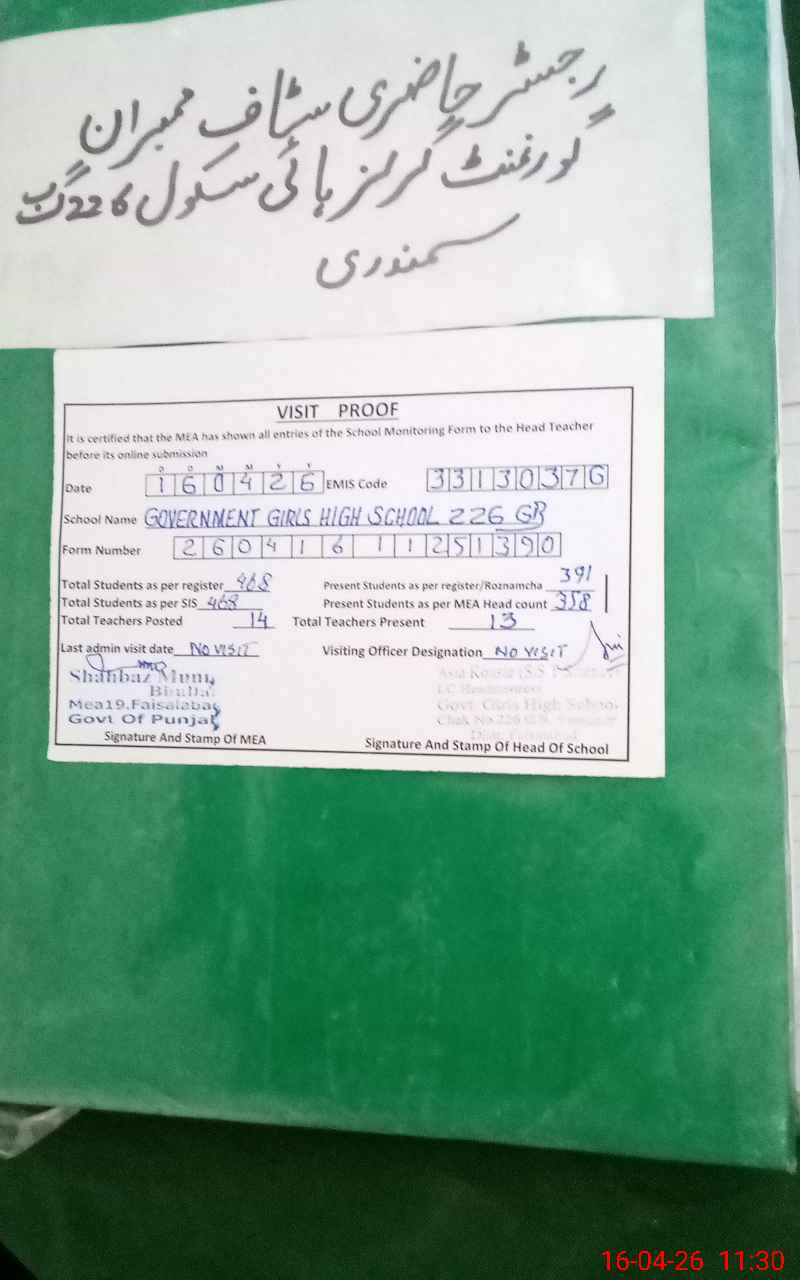 رجسٹر حاضری سٹاف ممبران
گورنمنٹ گرلز ہائی سکول 226 گ ب
سمندری
VISIT PROOF
It is certified that the MEA has shown all entries of the School Monitoring Form to the Head Teacher
before its online submission
D D M M Y Y
Date 160426 EMIS Code 3313037G
School Name GOVERNMENT GIRLS HIGH SCHOOL 226 GB
Form Number 26041611251390
Total Students as per register 468 Present Students as per register/Roznamcha 391
Total Students as per SIS 468 Present Students as per MEA Head count 358
Total Teachers Posted 14 Total Teachers Present 13
Last admin visit date NO VISIT Visiting Officer Designation NO VISIT
Shahbaz Muni
Mea19, Faisalabad
Govt Of Punjab
Govt. Girls High School
Chak No 226 G.B.
Signature And Stamp Of MEA Signature And Stamp Of Head Of School
16-04-26 11:30